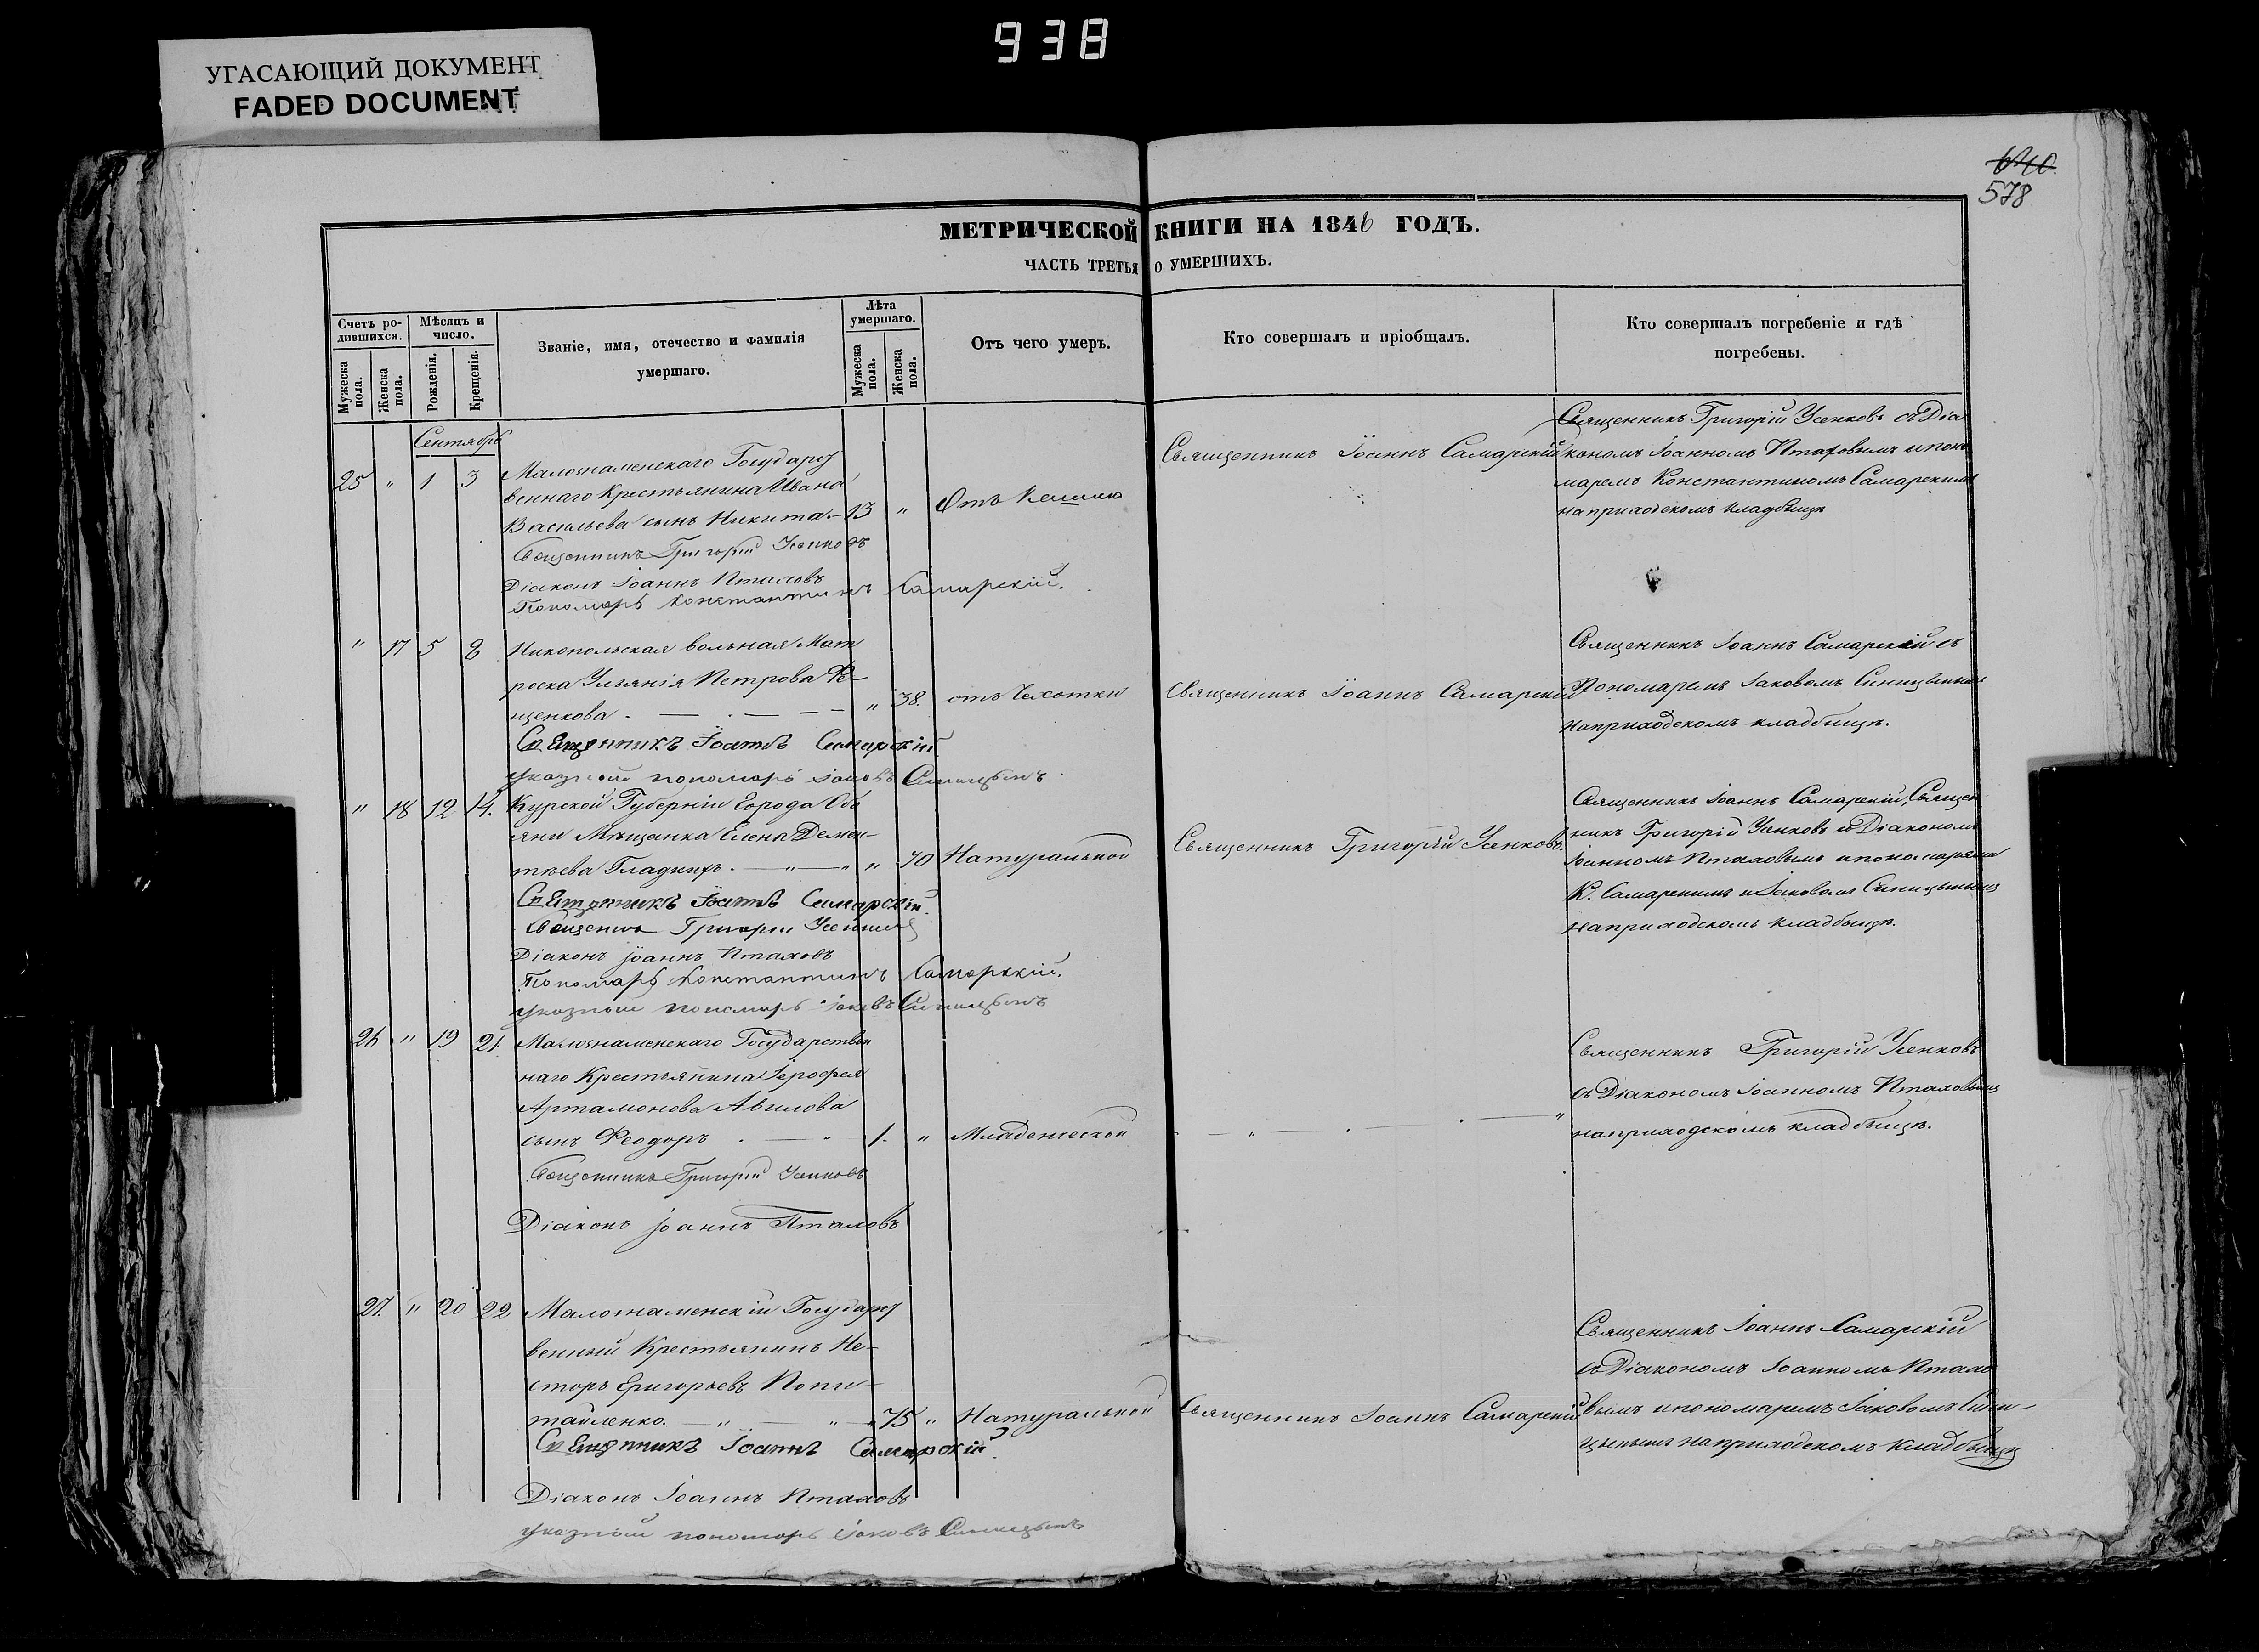 938
УГАСАЮЩИЙ ДОКУМЕНТ
FADED DOCUMENT
640.
578
МЕТРИЧЕСКОЙ КНИГИ НА 1846 ГОДЪ.
ЧАСТЬ ТРЕТЬЯ О УМЕРШИХЪ.
Счетъ ро-
дившихся.
Мужеска пола.
Женска пола.
Мѣсяцъ и
число.
Рожденія.
Крещенія.
Званіе, имя, отечество и фамилія
умершаго.
Лѣта
умершаго.
Мужеска пола.
Женска пола.
Отъ чего умеръ.
Кто совершалъ и пріобщалъ.
Кто совершалъ погребеніе и гдѣ
погребены.
Сентябрь
25 " 1 3 Малознаменскаго Государст
веннаго Крестьянина Ивана
Васильева сынъ Никита. — 13 " Отъ Кашлю
Священникъ Іоаннъ Самарскій
Священникъ Григорій Усенковъ съ Діа
кономъ Іоанномъ Птаховымъ и поно
маремъ Константиномъ Самарскимъ
на приходскомъ кладбищѣ
Священникъ Григорій Усенковъ
Діаконъ Іоаннъ Птаховъ
Пономарь Константинъ Самарскій.
" 17 5 8 Никопольская вольная Мат
роска Ульянія Петрова
щенкова. — . — — " 38. отъ Чахотки
Священникъ Іоаннъ Самарскій
Священникъ Іоаннъ Самарскій съ
Пономаремъ Іаковомъ Синицынымъ
на приходскомъ кладбищѣ.
Священникъ Іоаннъ Самарскій
указный пономарь Іаковъ Синицынъ
" 18 12 14. Курской Губерніи Города Обо
яни Мѣщанка Елена Демен-
тѣева Гладкихъ. — " — " " 70 Натуральной
Священникъ Григорій Усенковъ.
Священникъ Іоаннъ Самарскій, Священ
никъ Григорій Усенковъ съ Діакономъ
Іоанномъ Птаховымъ и пономарями
К. Самарскимъ и Іаковомъ Синицынымъ
на приходскомъ кладбищѣ.
Священникъ Іоаннъ Самарскій.
Священникъ Григорій Усенковъ
Діаконъ Іоаннъ Птаховъ
Пономарь Константинъ Самарскій.
указный пономарь Іаковъ Синицынъ
26 " 19 21. Малознаменскаго Государствен
наго Крестьянина Іерофея
Артамонова Авилова
сынъ Феодоръ . — " 1. " Младенческой
— " — . — . — "
Священникъ Григорій Усенковъ
съ Діакономъ Іоанномъ Птаховымъ
на приходскомъ кладбищѣ.
Священникъ Григорій Усенковъ
Діаконъ Іоаннъ Птаховъ
27. " 20 22 Малознаменскій Государст
венный Крестьянинъ Не-
сторъ Григорьевъ Копи-
тайленко. — " — " — " 75 " Натуральной
Священникъ Іоаннъ Самарскій
Священникъ Іоаннъ Самарскій
съ Діакономъ Іоанномъ Птахо
вымъ и пономаремъ Іаковомъ Сини-
цынымъ на приходскомъ кладбищѣ
Священникъ Іоаннъ Самарскій.
Діаконъ Іоаннъ Птаховъ
указный пономарь Іаковъ Синицынъ